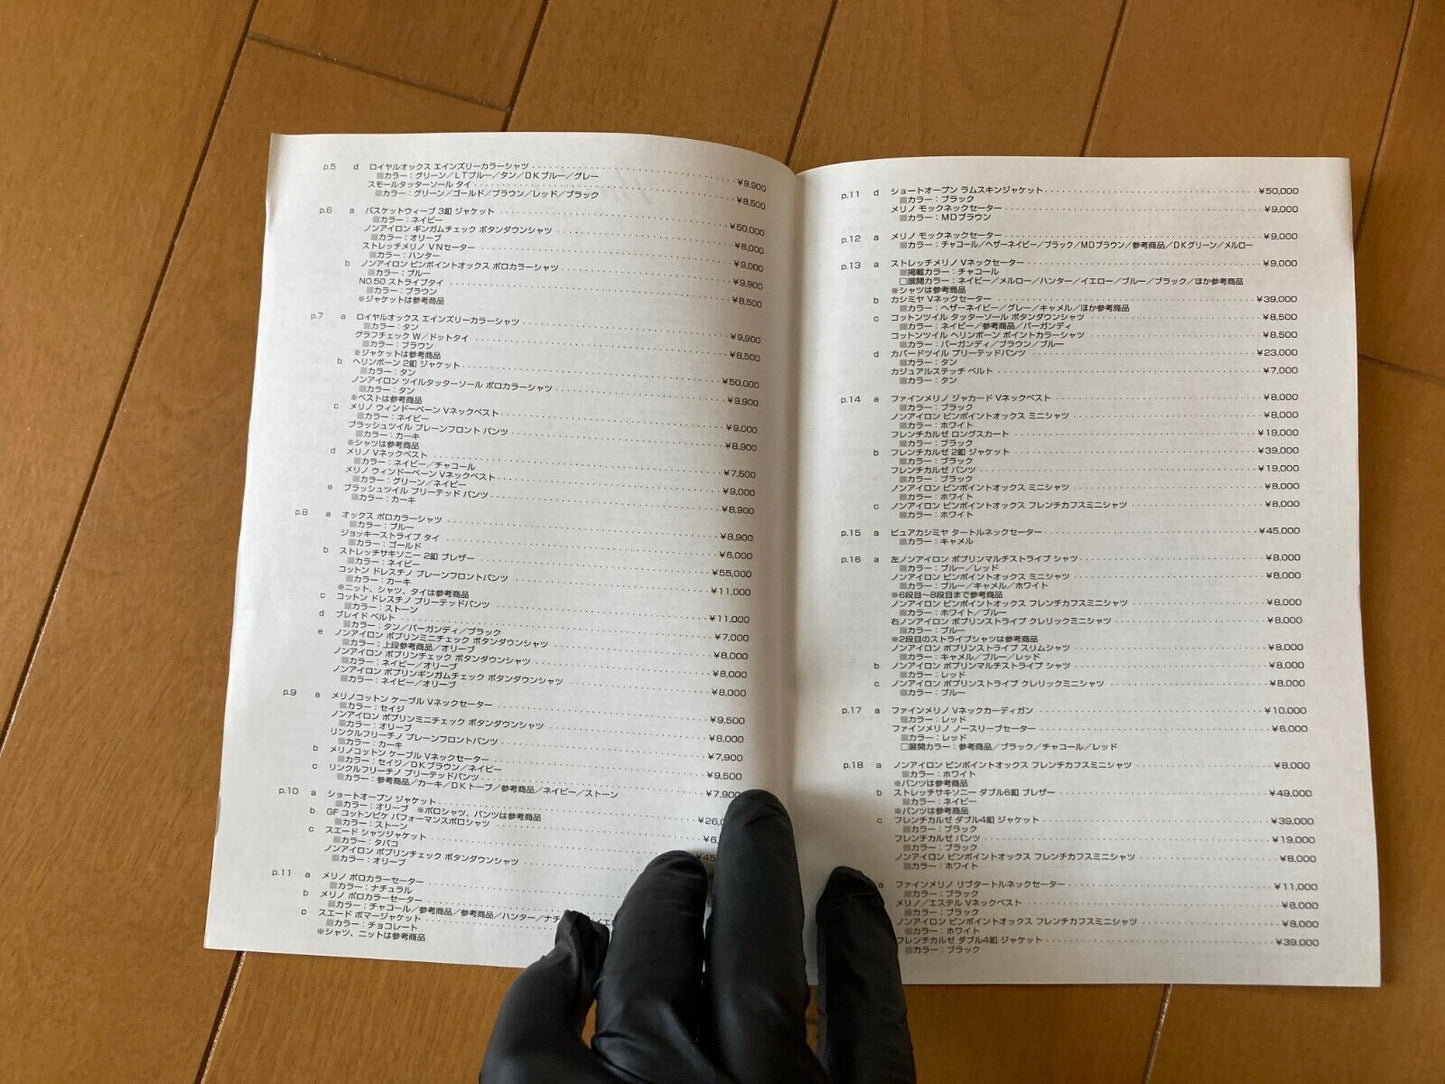 p.5 d ロイヤルオックス エインズリーカラーシャツ ¥9,900
■カラー：グリーン／LTブルー／タン／DKブルー／グレー
スモールタッターソール タイ ¥8,500
■カラー：グリーン／ゴールド／ブラウン／レッド／ブラック
p.6 a バスケットウィーブ 3釦 ジャケット ¥50,000
■カラー：ネイビー
ノンアイロン ギンガムチェック ボタンダウンシャツ ¥8,000
■カラー：オリーブ
ストレッチメリノ VNセーター ¥9,000
■カラー：ハンター
b ノンアイロン ピンポイントオックス ポロカラーシャツ ¥9,900
■カラー：ブルー
NO.50 ストライプタイ ¥8,500
■カラー：ブラウン
※ジャケットは参考商品
p.7 a ロイヤルオックス エインズリーカラーシャツ ¥9,900
■カラー：タン
グラフチェック W／ドットタイ ¥8,500
■カラー：ブラウン
※ジャケットは参考商品
b ヘリンボーン 2釦 ジャケット ¥50,000
■カラー：タン
ノンアイロン ツイルタッターソール ポロカラーシャツ ¥9,900
■カラー：タン
※ベストは参考商品
c メリノ ウィンドーペーン Vネックベスト ¥9,000
■カラー：ネイビー
ブラッシュツイル プレーンフロント パンツ ¥8,900
■カラー：カーキ
※シャツは参考商品
d メリノ Vネックベスト ¥7,500
■カラー：ネイビー／チャコール
メリノ ウィンドーペーン Vネックベスト ¥9,000
■カラー：グリーン／ネイビー
e ブラッシュツイル プリーテッド パンツ ¥8,900
■カラー：カーキ
p.8 a オックス ポロカラーシャツ ¥8,900
■カラー：ブルー
ジョッキーストライプ タイ ¥6,000
■カラー：ゴールド
b ストレッチサキソニー 2釦 ブレザー ¥55,000
■カラー：ネイビー
コットン ドレスチノ プレーンフロントパンツ ¥11,000
■カラー：カーキ
※ニット、シャツ、タイは参考商品
c コットン ドレスチノ プリーテッドパンツ ¥11,000
■カラー：ストーン
d ブレイド ベルト ¥7,000
■カラー：タン／バーガンディ／ブラック
e ノンアイロン ポプリンミニチェック ボタンダウンシャツ ¥8,000
■カラー：上段参考商品／オリーブ
ノンアイロン ポプリンチェック ボタンダウンシャツ ¥8,000
■カラー：ネイビー／オリーブ
ノンアイロン ポプリンギンガムチェック ボタンダウンシャツ ¥8,000
■カラー：ネイビー／オリーブ
p.9 a メリノコットン ケーブル Vネックセーター ¥9,500
■カラー：セイジ
ノンアイロン ポプリンミニチェック ボタンダウンシャツ ¥8,000
■カラー：オリーブ
リンクルフリーチノ プレーンフロントパンツ ¥7,900
■カラー：カーキ
b メリノコットン ケーブル Vネックセーター ¥9,500
■カラー：セイジ／DKブラウン／ネイビー
c リンクルフリーチノ プリーテッドパンツ ¥7,900
■カラー：参考商品／カーキ／DKトープ／参考商品／ネイビー／ストーン
p.10 a ショートオープン ジャケット ¥26,0
■カラー：オリーブ ※ポロシャツ、パンツは参考商品
b GF コットンピケ パフォーマンスポロシャツ ¥6,
■カラー：ストーン
c スエード シャツジャケット ¥45
■カラー：タバコ
ノンアイロン ポプリンチェック ボタンダウンシャツ
■カラー：オリーブ
p.11 a メリノ ポロカラーセーター
■カラー：ナチュラル
b メリノ ポロカラーセーター
■カラー：チャコール／参考商品／参考商品／ハンター／ナチ
c スエード ボマージャケット
■カラー：チョコレート
※シャツ、ニットは参考商品
p.11 d ショートオープン ラムスキンジャケット ¥50,000
■カラー：ブラック
メリノ モックネックセーター ¥9,000
■カラー：MDブラウン
p.12 a メリノ モックネックセーター ¥9,000
■カラー：チャコール／ヘザーネイビー／ブラック／MDブラウン／参考商品／DKグリーン／メルロー
p.13 a ストレッチメリノ Vネックセーター ¥9,000
■掲載カラー：チャコール
□展開カラー：ネイビー／メルロー／ハンター／イエロー／ブルー／ブラック／ほか参考商品
※シャツは参考商品
b カシミヤ Vネックセーター ¥39,000
■カラー：ヘザーネイビー／グレー／キャメル／ほか参考商品
c コットンツイル タッターソール ボタンダウンシャツ ¥8,500
■カラー：ネイビー／参考商品／バーガンディ
コットンツイル ヘリンボーン ポイントカラーシャツ ¥8,500
■カラー：バーガンディ／ブラウン／ブルー
d カバードツイル プリーテッドパンツ ¥23,000
■カラー：タン
カジュアルステッチ ベルト ¥7,000
■カラー：タン
p.14 a ファインメリノ ジャカード Vネックベスト ¥8,000
■カラー：ブラック
ノンアイロン ピンポイントオックス ミニシャツ ¥8,000
■カラー：ホワイト
フレンチカルゼ ロングスカート ¥19,000
■カラー：ブラック
b フレンチカルゼ 2釦 ジャケット ¥39,000
■カラー：ブラック
フレンチカルゼ パンツ ¥19,000
■カラー：ブラック
ノンアイロン ピンポイントオックス ミニシャツ ¥8,000
■カラー：ホワイト
c ノンアイロン ピンポイントオックス フレンチカフスミニシャツ ¥8,000
■カラー：ホワイト
p.15 a ピュアカシミヤ タートルネックセーター ¥45,000
■カラー：キャメル
p.16 a 左ノンアイロン ポプリンマルチストライプ シャツ ¥8,000
■カラー：ブルー／レッド
ノンアイロン ピンポイントオックス ミニシャツ ¥8,000
■カラー：ブルー／キャメル／ホワイト
※6段目〜8段目まで参考商品
ノンアイロン ピンポイントオックス フレンチカフスミニシャツ ¥8,000
■カラー：ホワイト／ブルー
右ノンアイロン ポプリンストライプ クレリックミニシャツ ¥8,000
■カラー：ブルー
※2段目のストライプシャツは参考商品
ノンアイロン ポプリンストライプ スリムシャツ ¥8,000
■カラー：キャメル／ブルー／レッド
b ノンアイロン ポプリンマルチストライプ シャツ ¥8,000
■カラー：レッド
c ノンアイロン ポプリンストライプ クレリックミニシャツ ¥8,000
■カラー：ブルー
p.17 a ファインメリノ Vネックカーディガン ¥10,000
■カラー：レッド
ファインメリノ ノースリーブセーター ¥6,000
■カラー：レッド
□展開カラー：参考商品／ブラック／チャコール／レッド
p.18 a ノンアイロン ピンポイントオックス フレンチカフスミニシャツ ¥8,000
■カラー：ホワイト
※パンツは参考商品
b ストレッチサキソニー ダブル6釦 ブレザー ¥49,000
■カラー：ネイビー
※パンツは参考商品
c フレンチカルゼ ダブル4釦 ジャケット ¥39,000
■カラー：ブラック
フレンチカルゼ パンツ ¥19,000
■カラー：ブラック
ノンアイロン ピンポイントオックス フレンチカフスミニシャツ ¥8,000
■カラー：ホワイト
a ファインメリノ リブタートルネックセーター ¥11,000
■カラー：ブラック
メリノ／エステル Vネックベスト ¥8,000
■カラー：ブラック
ノンアイロン ピンポイントオックス フレンチカフスミニシャツ ¥8,000
■カラー：ホワイト
フレンチカルゼ ダブル4釦 ジャケット ¥39,000
■カラー：ブラック